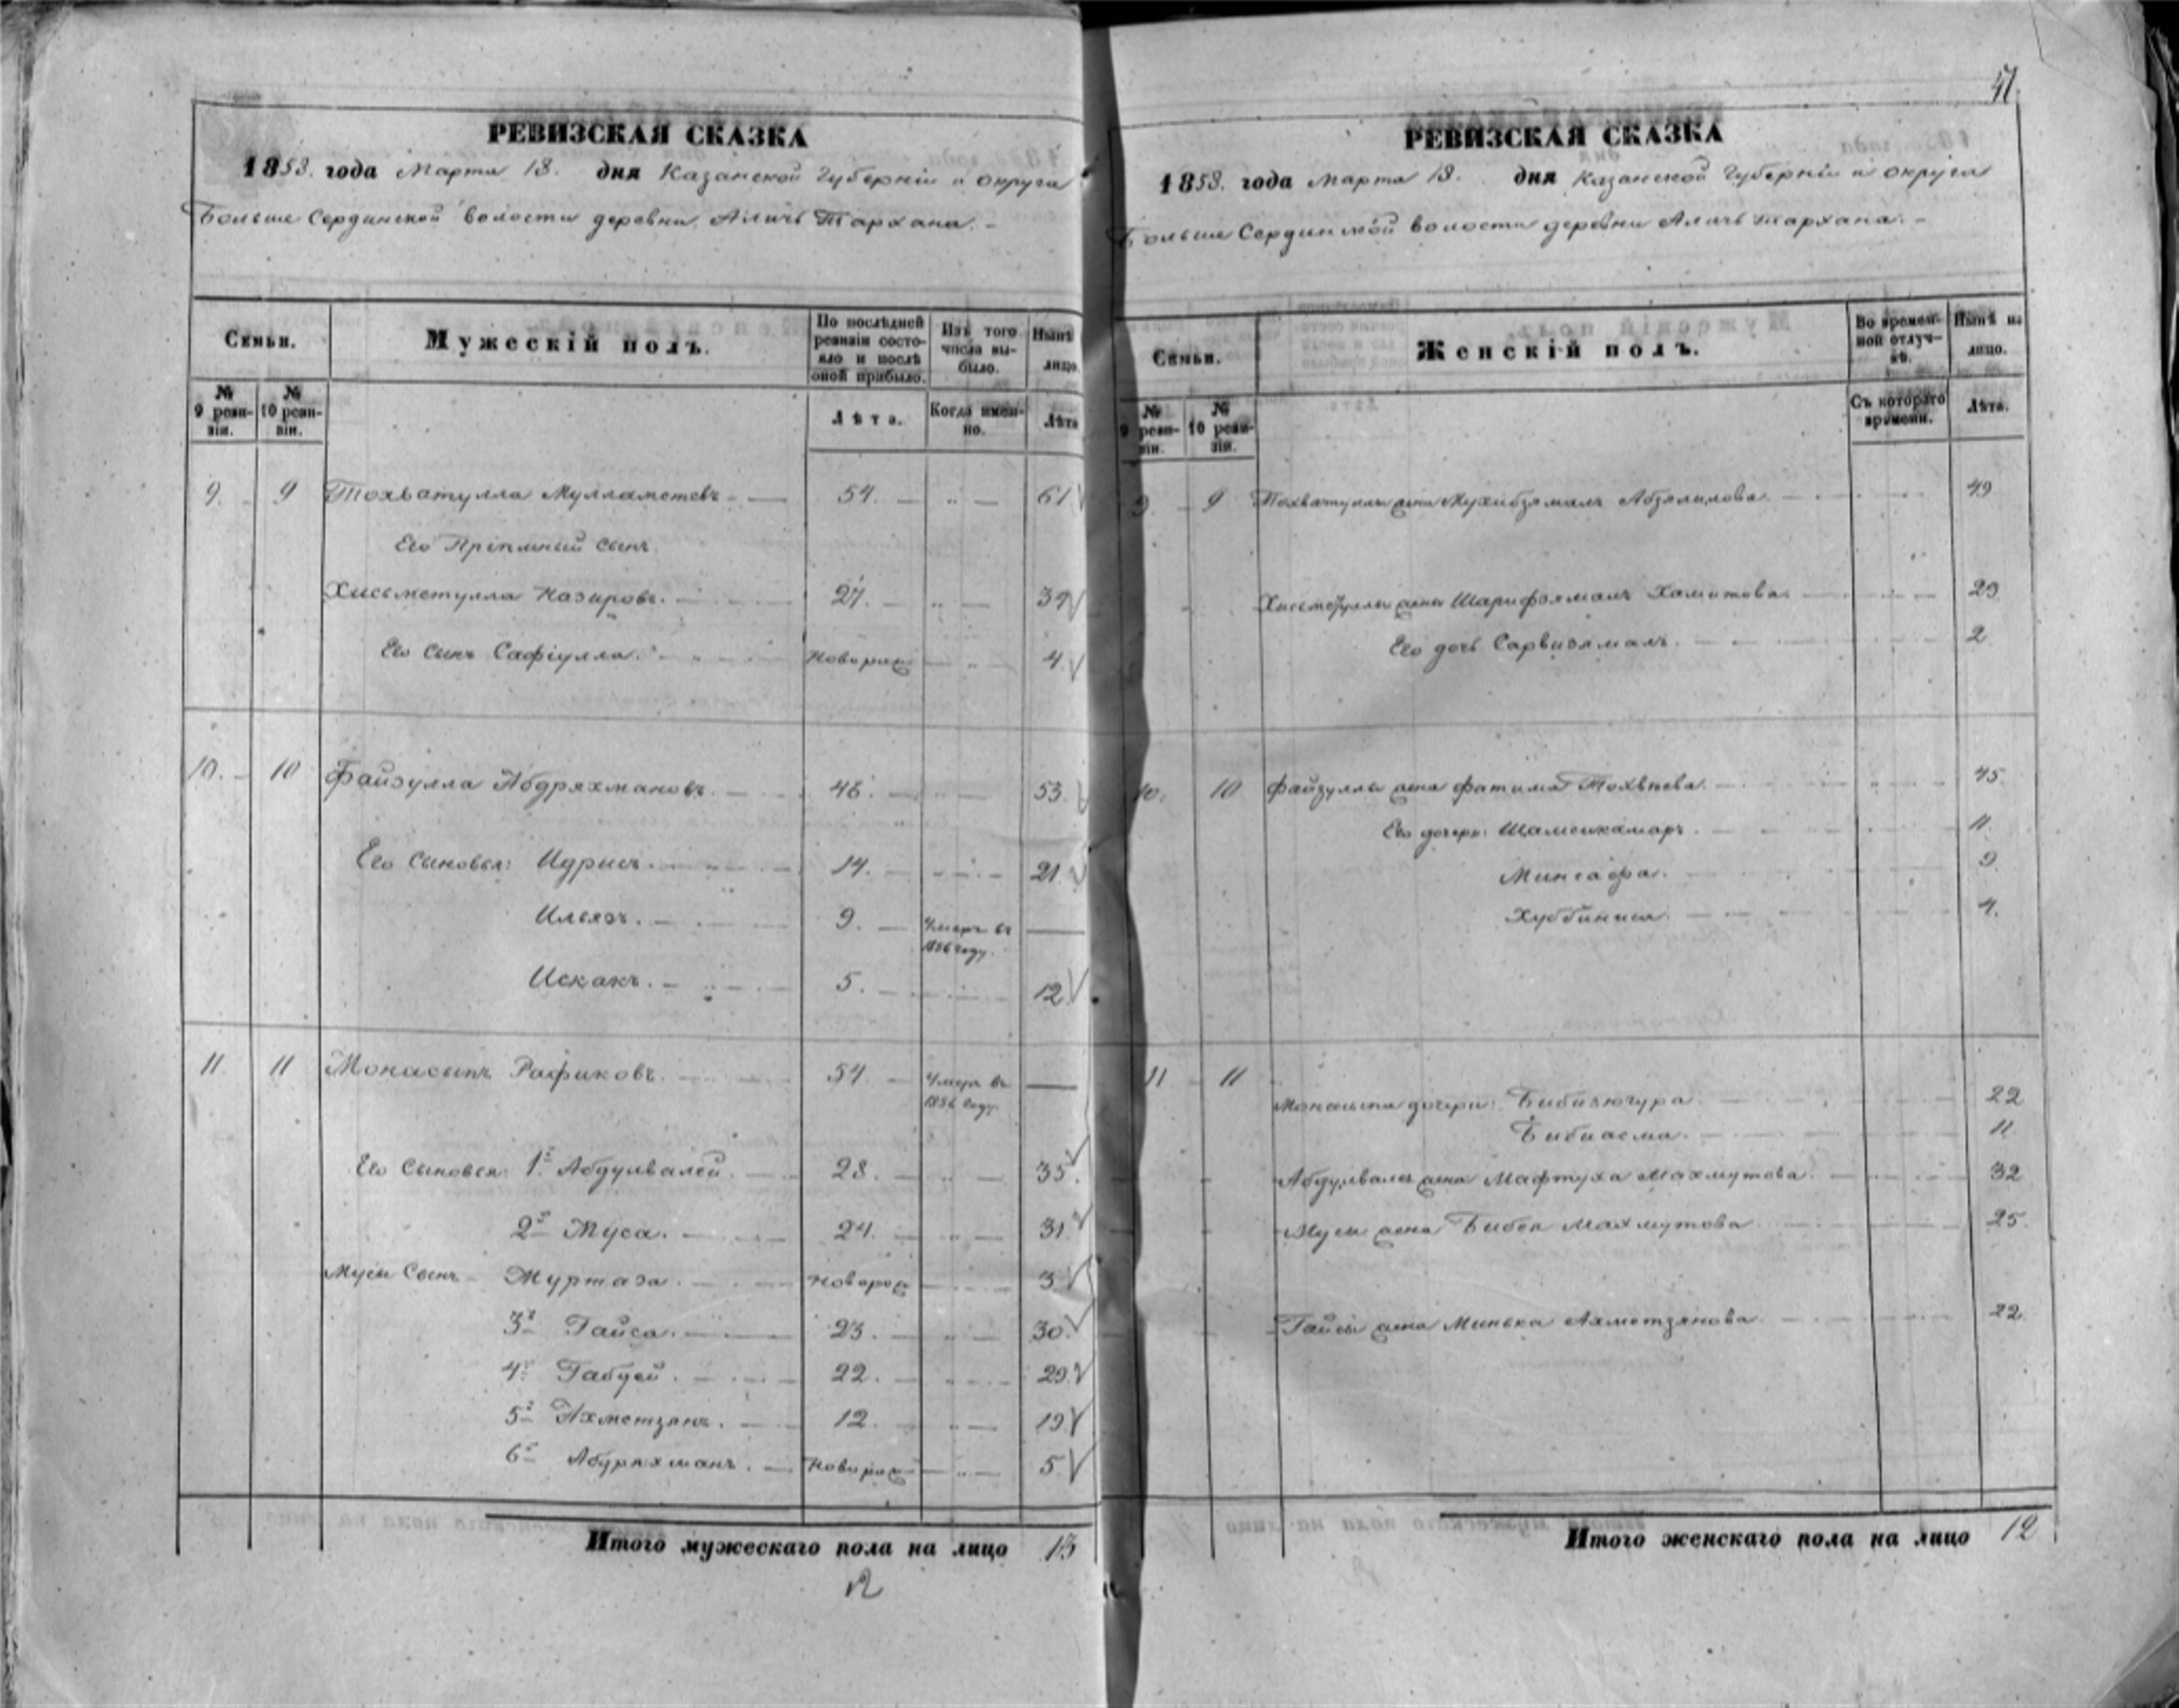 РЕВИЗСКАЯ СКАЗКА
1858. года Марта 18. дня Казанской Губерніи и округа
Больше Сердинской волости деревни Аличъ Тархана. -
Семьи.
Мужескій полъ.
По послѣдней ревизіи состояло и послѣ оной прибыло.
Изъ того числа выбыло.
Нынѣ лицо.
№ 9 ревизіи.
№ 10 ревизіи.
Лѣта.
Когда именно.
Лѣта
9. 9 Тохватулла Мулламетевъ 54. 61
Его Пріемный сынъ
Хисьметулла Назировъ. 27. 34
Его сынъ Сафіулла. Новорож 4.
10. 10 Файзулла Абдряхмановъ. 46. 53.
Его Сыновья: Идрисъ. 14. 21.
Ильязъ. 9. Умеръ въ 1856 году.
Искакъ. 5. 12
11. 11 Монасыпъ Рафиковъ. 54. Умеръ въ 1856 году.
Его Сыновья: 1й Абдулвалей. 28. 35.
2й Муса. 24. 31
Мусы Сынъ Муртаза. Новорож 3
3й Гайса. 23. 30.
4й Габдей. 22. 29.
5й Ахметзянъ. 12. 19
6й Абдряхманъ. Новорож 5.
Итого мужескаго пола на лицо 13
51.
РЕВИЗСКАЯ СКАЗКА
1858. года Марта 18. дня Казанской Губерніи и округа
Больше Сердинской волости деревни Аличъ Тархана. -
Семьи.
Женскій полъ.
Во временной отлучкѣ.
Нынѣ на лицо.
№ 9 ревизіи.
№ 10 ревизіи.
Съ котораго времени.
Лѣта.
9. 9 Тохватуллы жена Мухибзямалъ Абзялилова. 49
Хисьметуллы жена Шарифзямалъ Хамитова. 29.
Его дочь Сарвизямалъ. 2.
10. 10 Файзуллы жена Фатима Тохвиева. 45.
Его дочери: Шамсикамаръ. 11.
Минсафа. 9
Хуббиниса. 4.
11 11
Монасыпа дочери: Бибизюгура. 22
Бибиасма. 11.
Абдулвалея жена Мафтуха Махмутова. 32
Мусы жена Бибея Махмутова 25.
Гайсы жена Минька Ахметзянова 22.
Итого женскаго пола на лицо 12